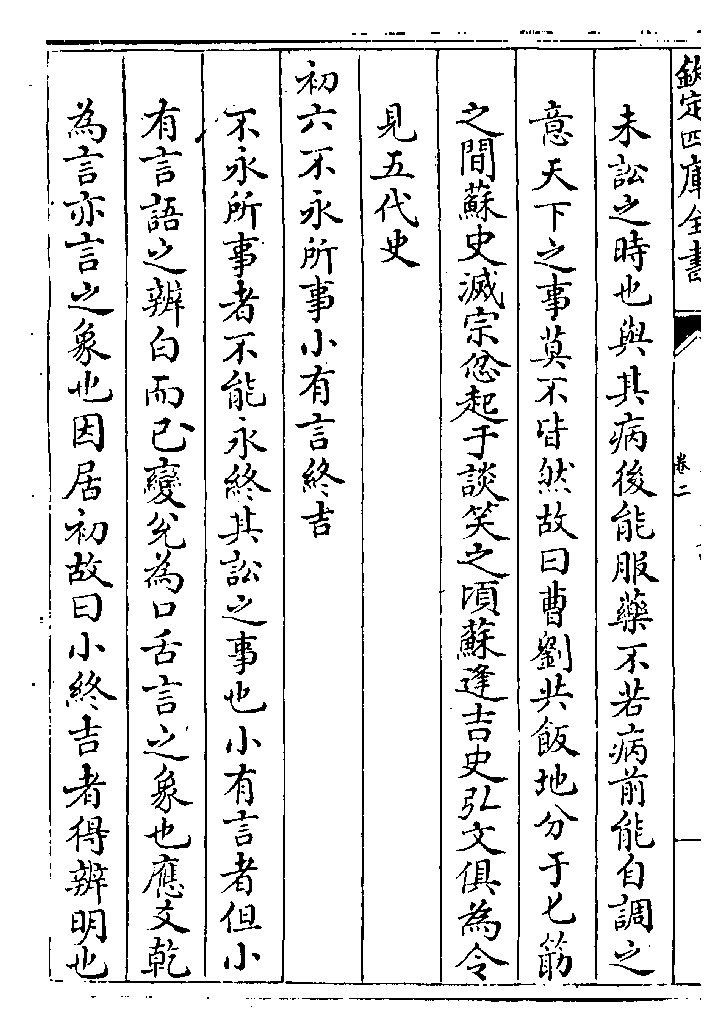 欽定四庫全書
卷二
未訟之時也與其病後能服藥不若病前能自調之
意天下之事莫不皆然故曰曹劉共飯地分于匕筯
之間蘇史滅宗忿起于談笑之頃蘇逢吉史弘文俱為令
見五代史
初六不永所事小有言終吉
不永所事者不能永終其訟之事也小有言者但小
有言語之辨白而已變兌為口舌言之象也應爻乾
為言亦言之象也因居初故曰小終吉者得辨明也